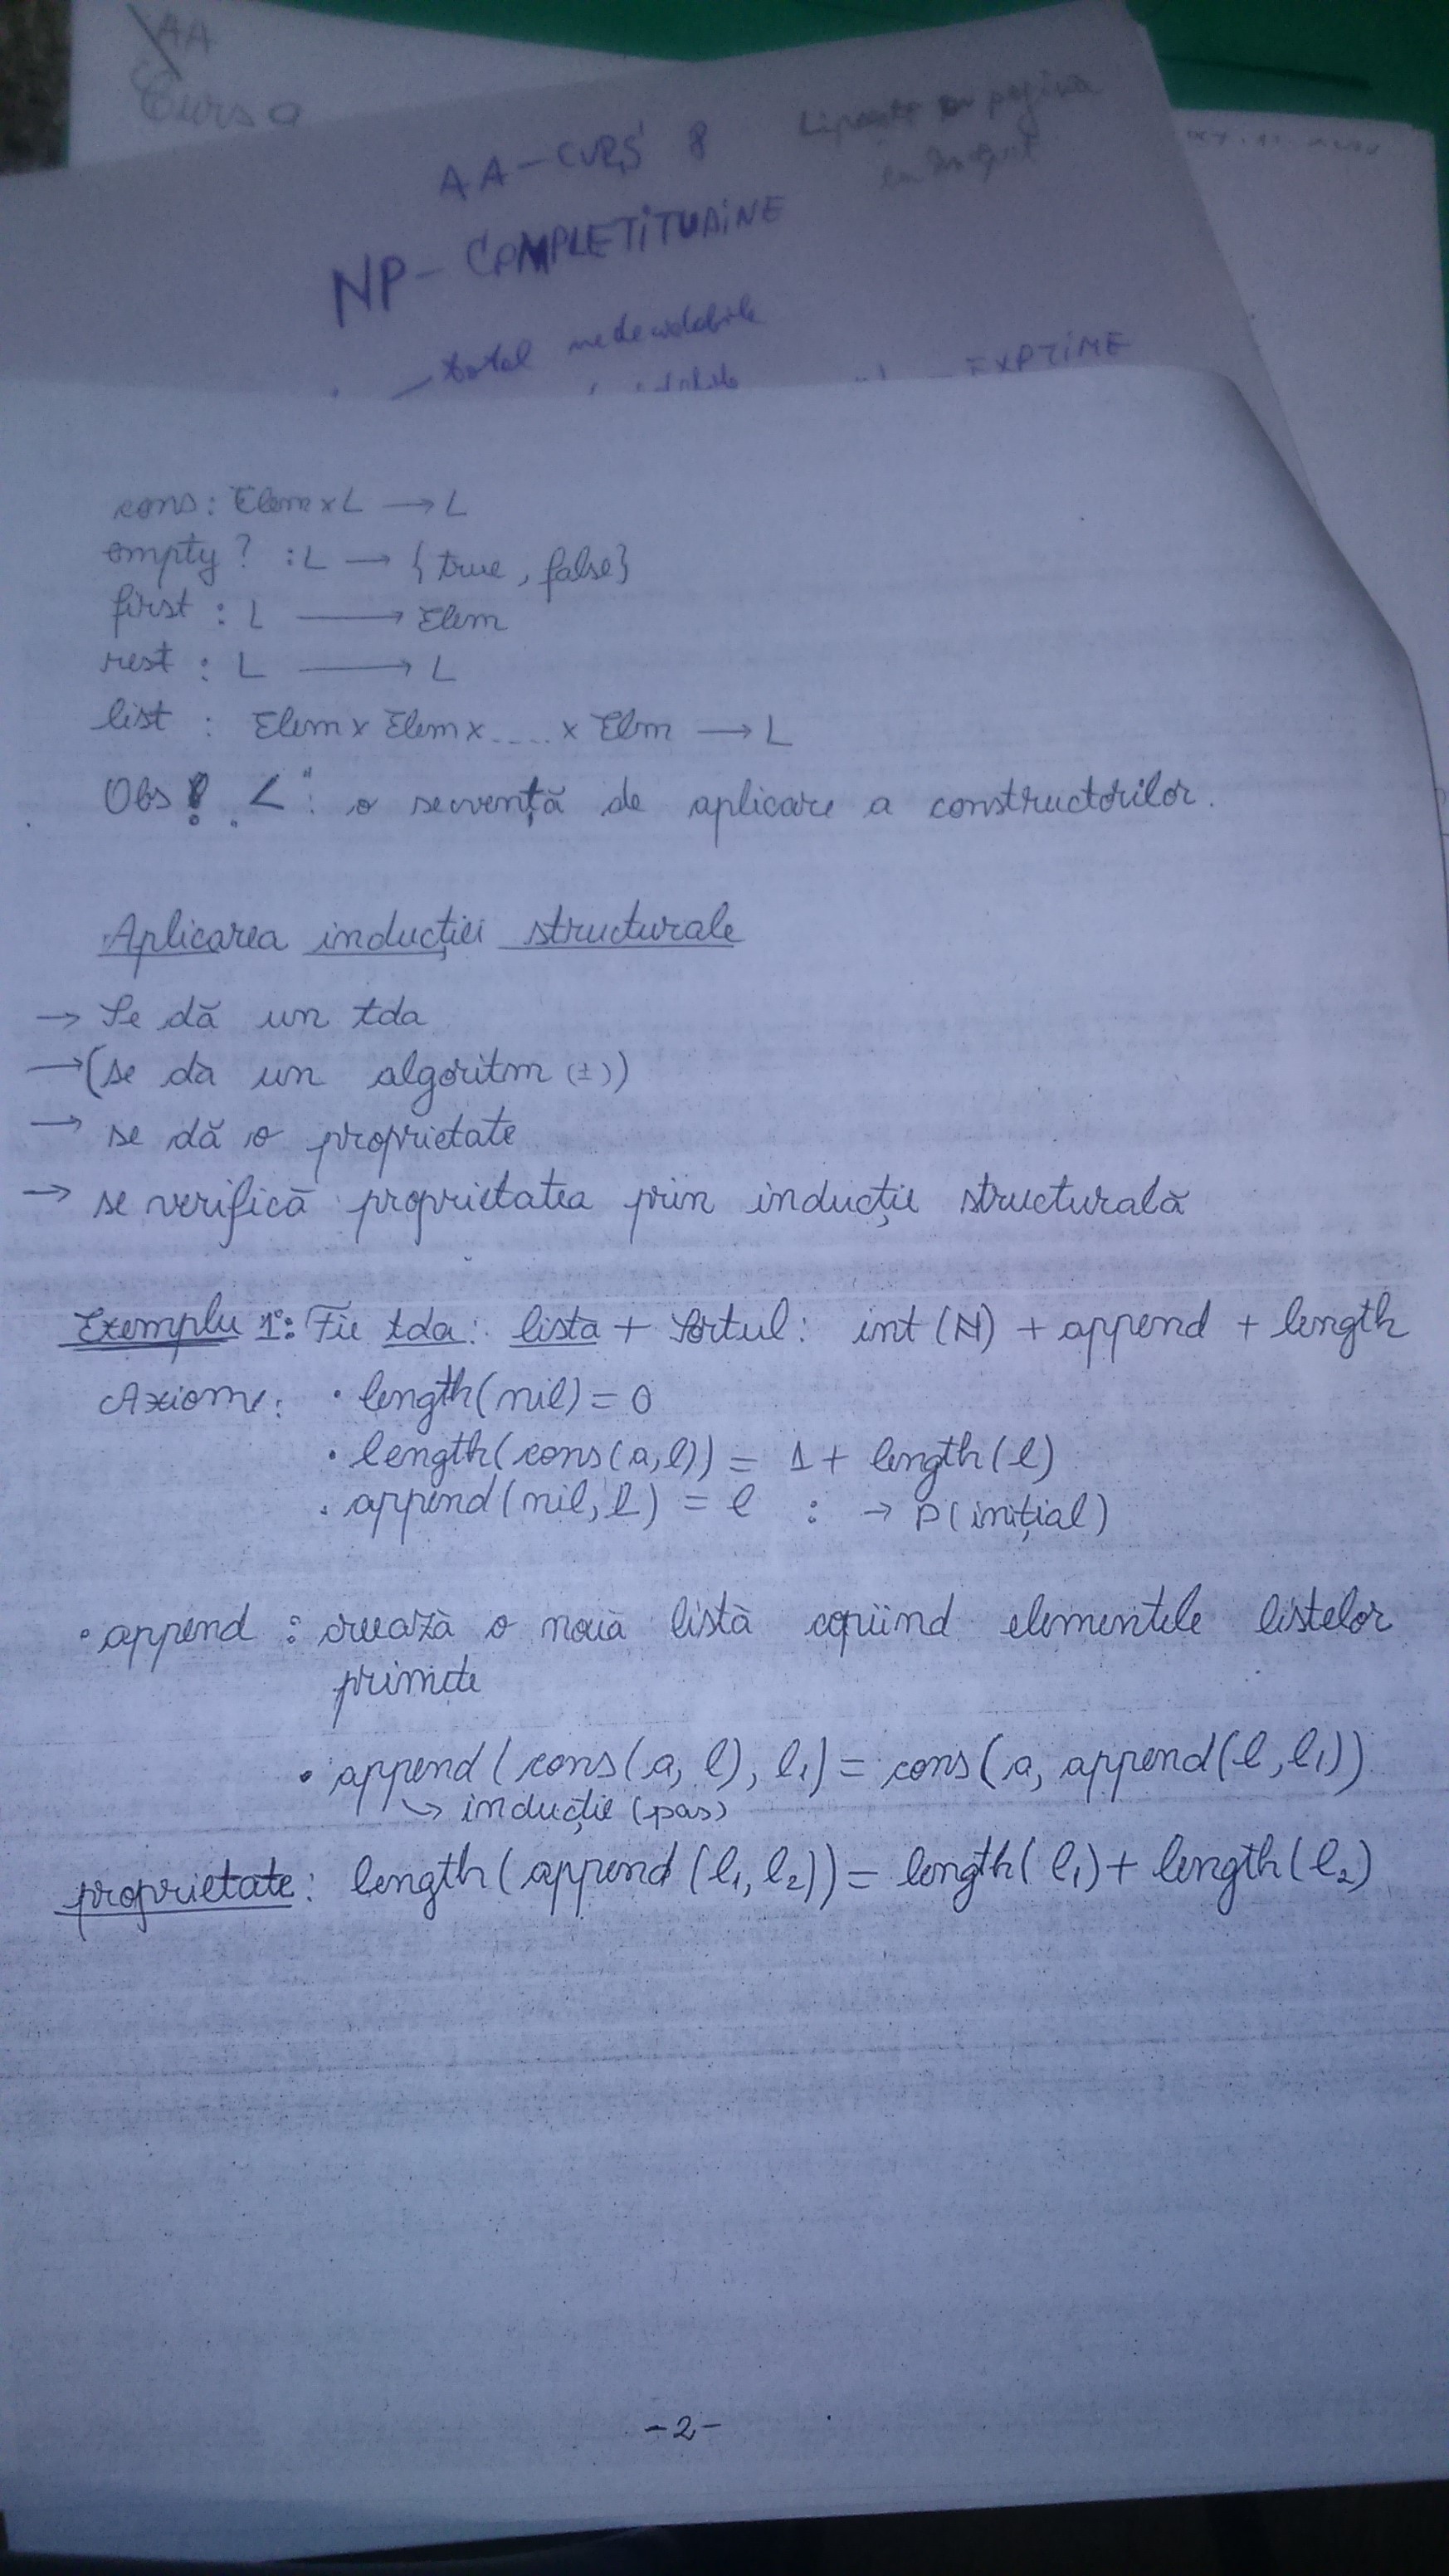 AA
Curs a
AA - CURS 8
pagina
NP - COMPLETITUDINE
total nedecidabile
EXPTIME
cons: Elem x L → L
empty? : L → {true, false}
first : L → Elem
rest : L → L
list : Elem x Elem x .... x Elm → L
Obs! „<": o secvență de aplicare a constructorilor.
Aplicarea inducției structurale
→ Se dă un tda
→ (se da un algoritm (±))
→ se dă o proprietate
→ se verifică proprietatea prin inducție structurală
Exemplu 1: Fie tda: lista + Sortul: int (N) + append + length
Axiome: • length(nil) = 0
• length(cons(a,l)) = 1 + length(l)
• append(nil, l) = l : → P(inițial)
• append : crează o nouă listă copiind elementele listelor
primite
• append(cons(a, l), l₁) = cons(a, append(l, l₁))
↳ inducție (pas)
proprietate: length(append(l₁, l₂)) = length(l₁) + length(l₂)
- 2 -